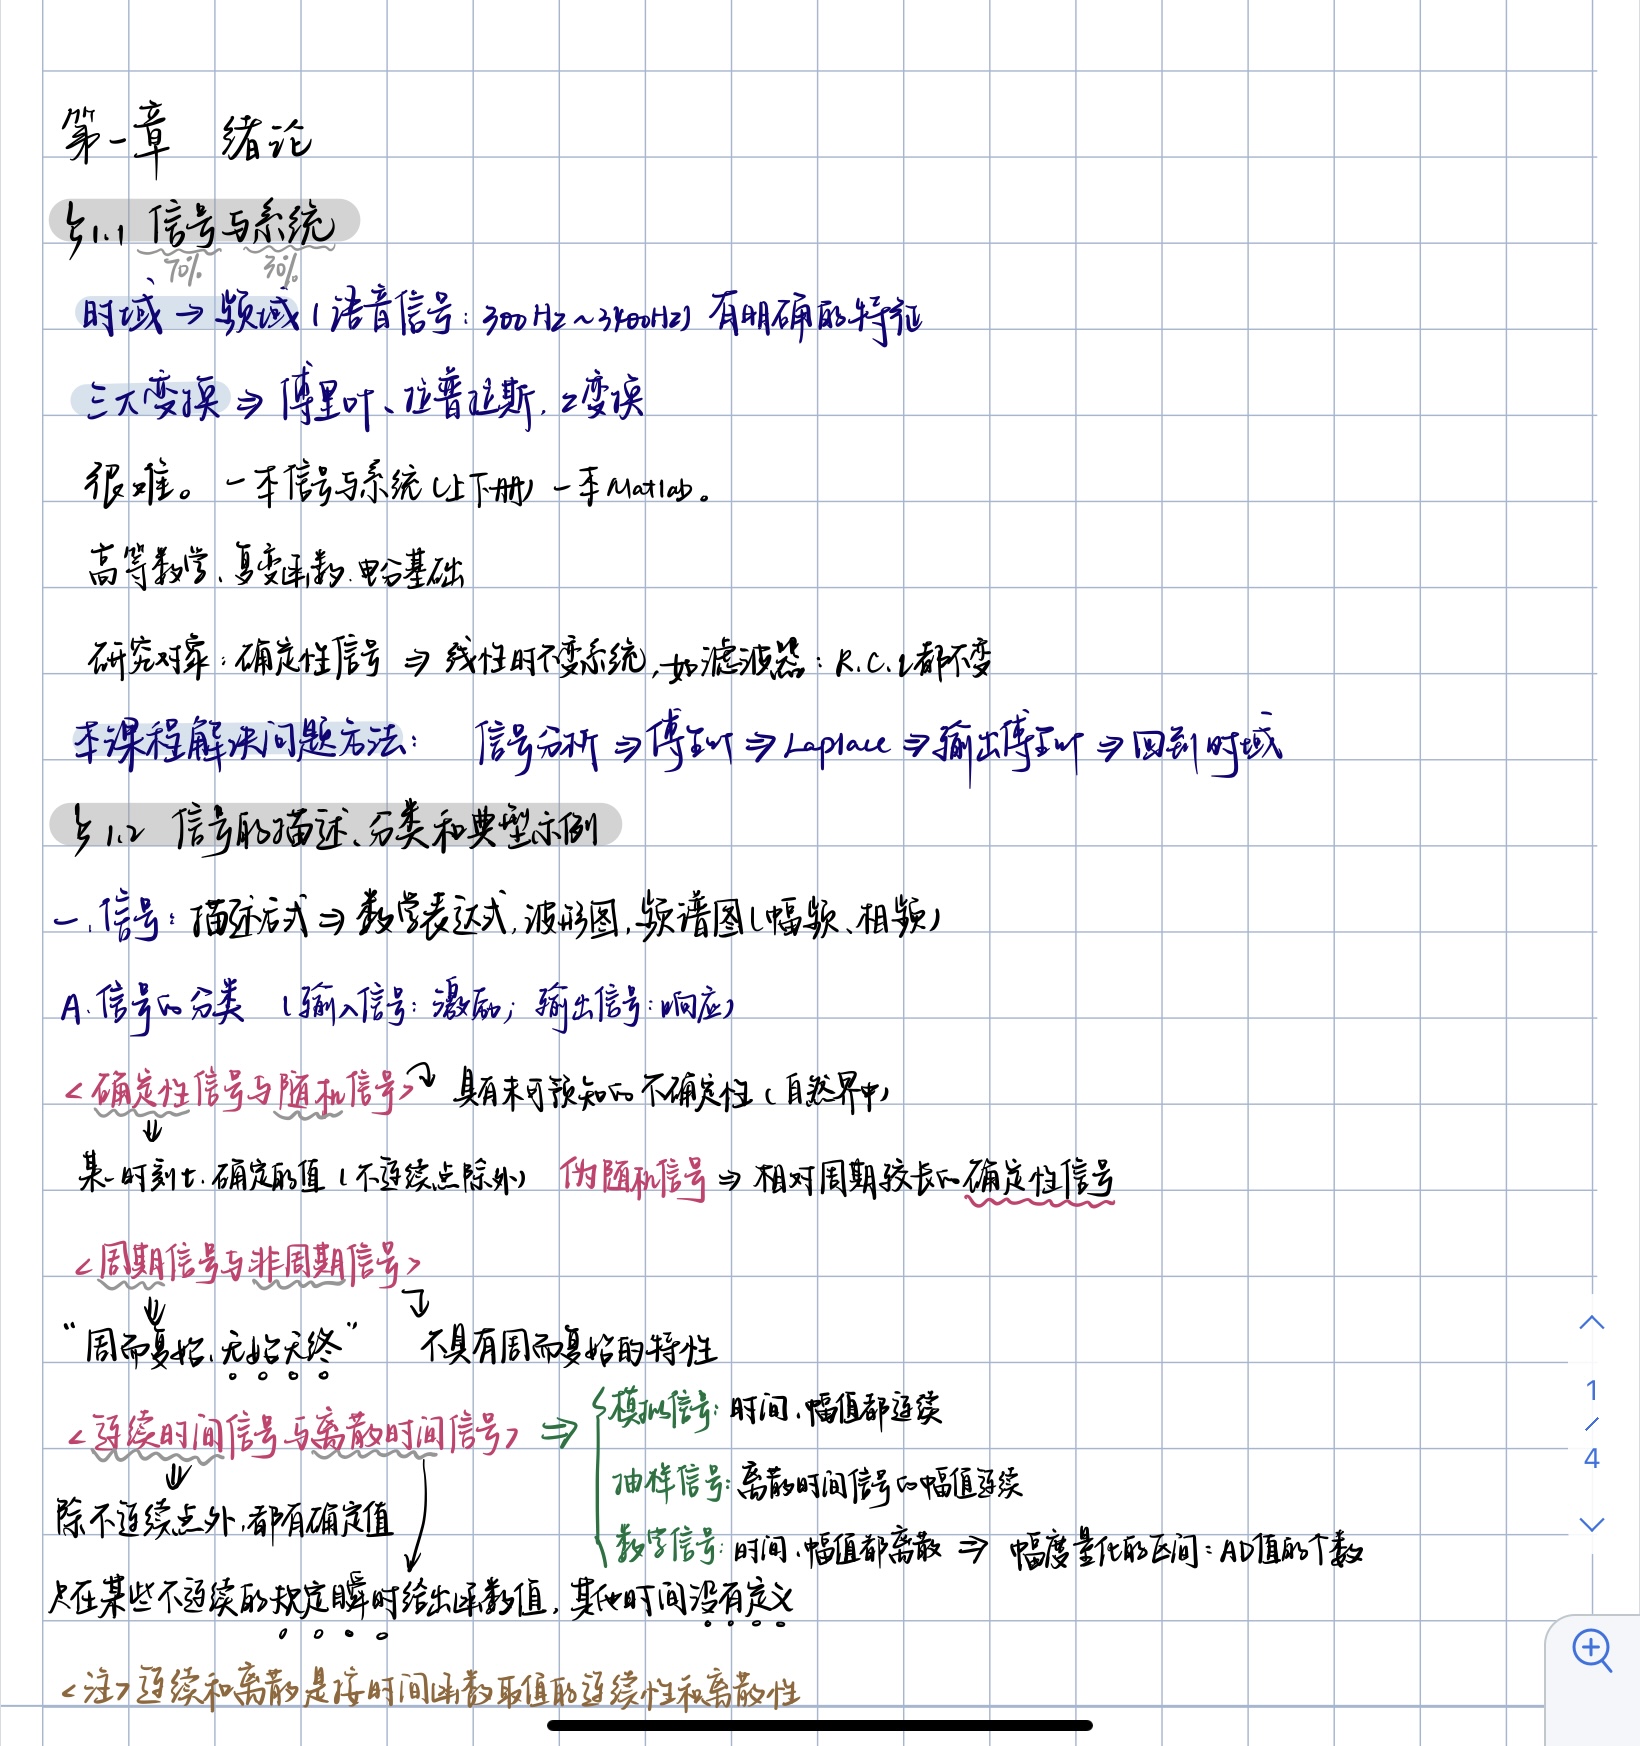 第一章 绪论
§1.1 信号与系统
70% 30%
时域→频域(语音信号:300Hz~3400Hz)有明确的特征
三大变换⇒傅里叶、拉普拉斯、Z变换
很难。一本信号与系统(上下册)一本Matlab。
高等数学、复变函数、电分基础
研究对象:确定性信号⇒线性时不变系统,如滤波器:R.C.L都不变
本课程解决问题方法: 信号分析⇒傅里叶⇒Laplace⇒输出傅里叶⇒回到时域
§1.2 信号的描述、分类和典型示例
一、信号:描述方式⇒数学表达式,波形图,频谱图(幅频、相频)
A.信号的分类 (输入信号:激励;输出信号:响应)
<确定性信号与随机信号> 具有未可预知的不确定性(自然界中)
某一时刻t.确定的值(不连续点除外) 伪随机信号⇒相对周期较长的确定性信号
<周期信号与非周期信号>
“周而复始、无始无终” 不具有周而复始的特性
<连续时间信号与离散时间信号>⇒
模拟信号:时间、幅值都连续
抽样信号:离散时间信号的幅值连续
数字信号:时间、幅值都离散⇒幅度量化的区间:AD值的个数
除不连续点外,都有确定值
只在某些不连续的规定瞬时给出函数值,其他时间没有定义
<注>连续和离散是按时间函数取值的连续性和离散性
1
/
4